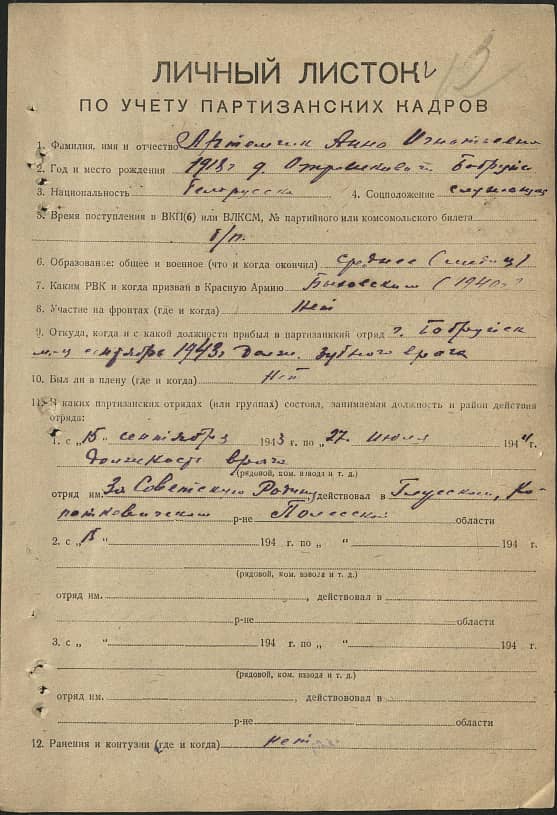 ЛИЧНЫЙ ЛИСТОК
ПО УЧЕТУ ПАРТИЗАНСКИХ КАДРОВ
1. Фамилия, имя и отчество Артемчик Анна Игнатьевна
2. Год и место рождения 1918 г д. Бобруйс
3. Национальность белорусска 4. Соцположение служащая
5. Время поступления в ВКП(б) или ВЛКСМ, № партийного или комсомольского билета
б/п.
6. Образование: общее и военное (что и когда окончил) среднее
7. Каким РВК и когда призван в Красную Армию Быховским (1940 г
8. Участие на фронтах (где и когда) нет
9. Откуда, когда и с какой должности прибыл в партизанкий отряд г. Бобруйск
м-ц сентябрь 1943 г долж. зубного врача
10. Был ли в плену (где и когда) Нет
11. В каких партизанских отрядах (или группах) состоял, занимаемая должность и район действия
отряда:
1. с „15" сентября 1943 г. по „27" июля 1944 г.
должность врача
(рядовой, ком. взвода и т. д.)
отряд им. За Советскую Родину действовал в Глусском, Ко-
паткевичском р-не Полесской области
2. с „ " 194 г. по „ " 194 г.
(рядовой, ком. взвода и т. д.)
отряд им. , действовал в
р-не области
3. с „ " 194 г. по „ " 194 г.
(рядовой, ком. взвода и т. д.)
отряд им. , действововал в
р-не области
12. Ранения и контузии (где и когда) нет